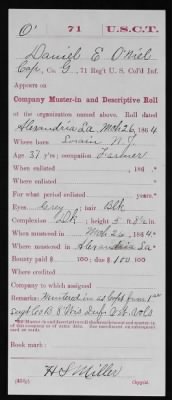 O' 71 U.S.C.T.
Daniel E O'Niel
Cap, Co. G, 71 Reg't U. S. Col'd Inf.
Appears on
Company Muster-in and Descriptive Roll
of the organization named above. Roll dated
Alexandria La Mch 26, 1864
Where born N.Y.
Age 37 y'rs; occupation Farmer
When enlisted , 186
Where enlisted
For what period enlisted years.
Eyes Grey; hair Blk
Complexion Dk; height 5 ft. 8½ in.
When mustered in Mch 26, 1864
Where mustered in Alexandria La
Bounty paid $ 100; due $ 100 100
Where credited
Company to which assigned
Remarks: Mustered in as Capt from 1st
Sergt Co B 8 Inf Vols
Book mark:
H S Miller
Copyist.